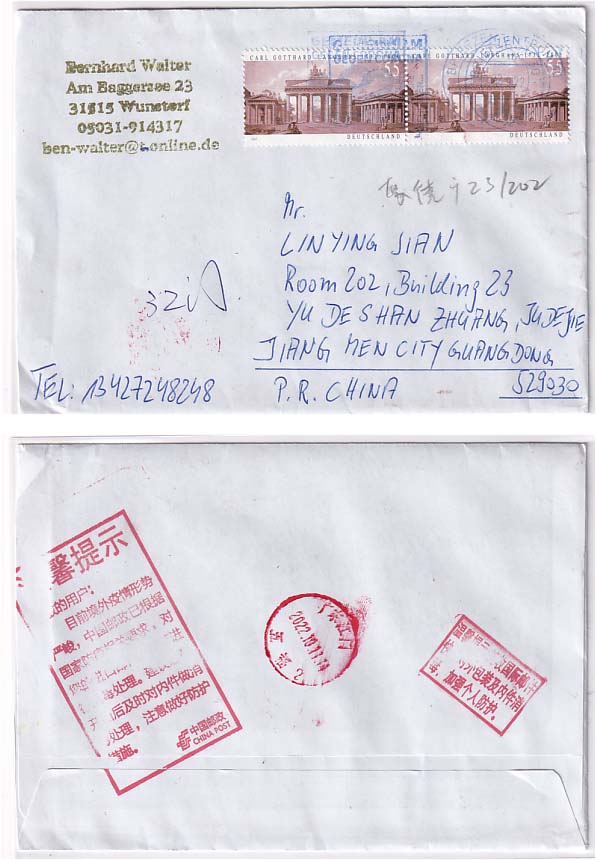 Bernhard Walter
Am Baggersee 23
31515 Wunstorf
05031-914317
ben-walter@t-online.de
CARL GOTTHARD LANGHANS 1732-1808
55
DEUTSCHLAND
CARL GOTTHARD LANGHANS 1732-1808
55
DEUTSCHLAND
23/202
Mr.
LINYING JIAN
Room 202, Building 23
YU DE SHAN ZHUANG, JUDEJIE
JIANG MEN CITY GUANGDONG
529030
P.R. CHINA
TEL: 13427248248
馨提示
的用户：
目前境外疫情形势
严峻，中国邮政已根据
国家 对进
处理。
开 后及时对内件做消
处理，注意做好防护
措施。
中国邮政
CHINA POST
广东江门
2022.10.11.14
国际邮件
外包装及内件消
加强个人防护。